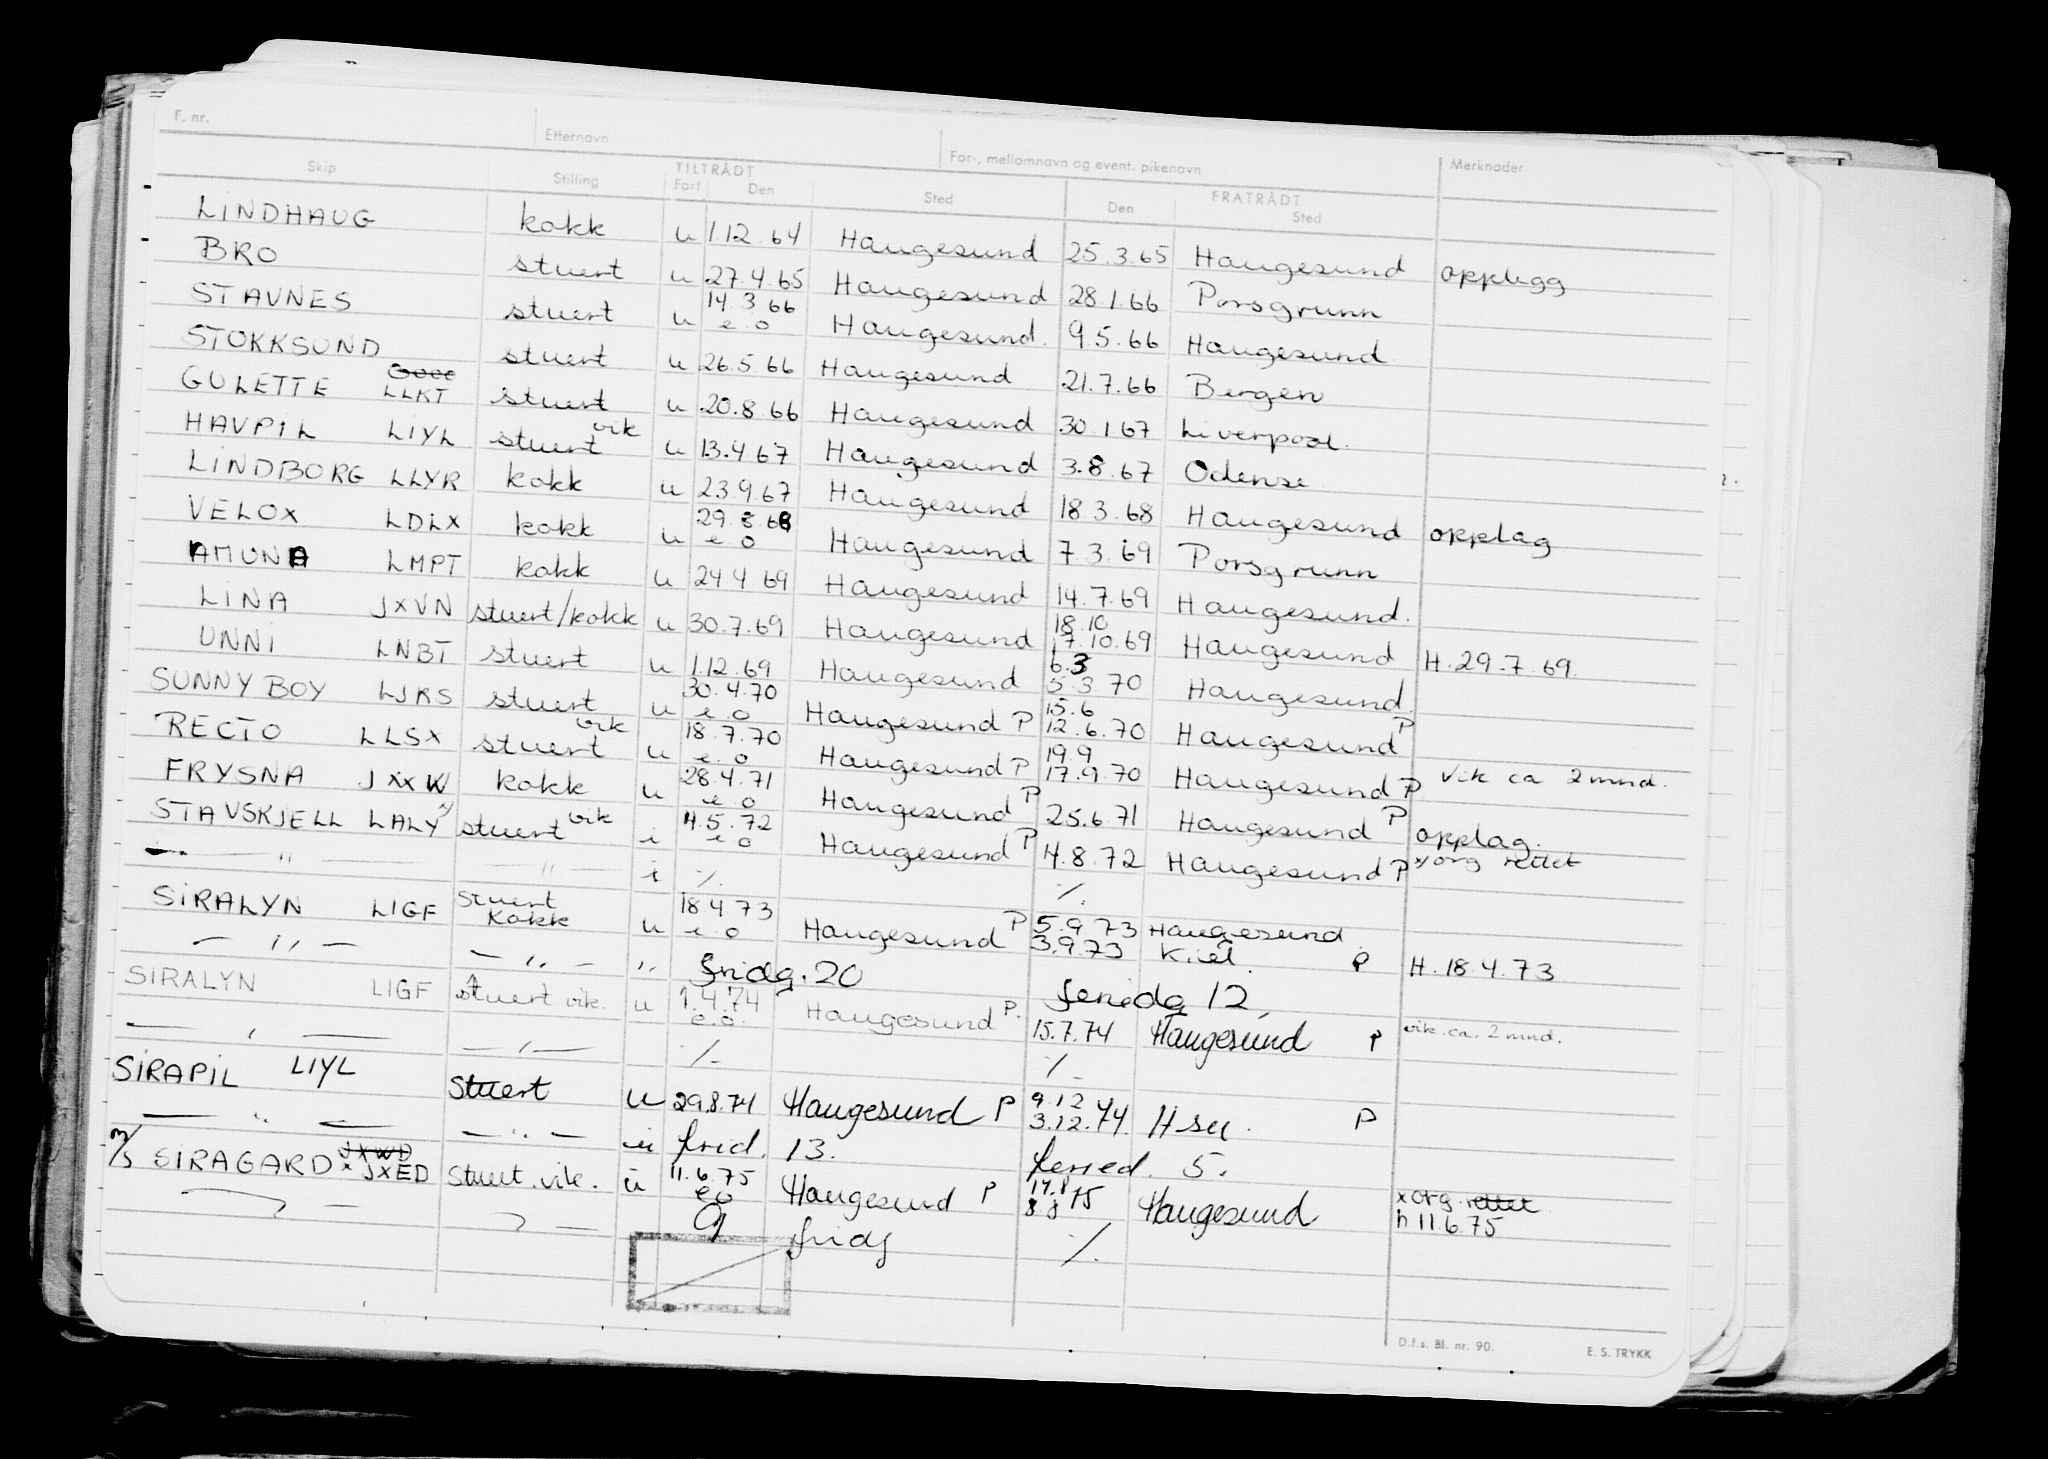 F. nr. Etternavn For-, mellomnavn og event. pikenavn Merknader
Skip Stilling TILTRÅDT Fart Den Sted FRATRÅDT Den Sted
LINDHAUG kokk u 1.12.64 Haugesund 25.3.65 Haugesund opplegg
BRO stuert u 27.4.65 Haugesund 28.1.66 Porsgrunn
STAVNES stuert u 14.3.66 e.o Haugesund. 9.5.66 Haugesund
STOKKSUND stuert u 26.5.66 Haugesund 21.7.66 Bergen
GULETTE LLKT stuert u 20.8.66 Haugesund 30.1.67 Liverpool.
HAVPIL LIYL stuert vik u 13.4.67 Haugesund 3.8.67 Odense
LINDBORG LLYR kokk u 23.9.67 Haugesund 18.3.68 Haugesund opplag
VELOX LDLX kokk u 29.8.68 e.o Haugesund 7.3.69 Porsgrunn
AMUNA LMPT kokk u 24.4.69 Haugesund 14.7.69 Haugesund.
LINA JXVN stuert/kokk u 30.7.69 Haugesund 18.10 17.10.69 Haugesund H.29.7.69.
UNNI LNBT stuert u 1.12.69 Haugesund 6.3 5.3.70 Haugesund.
SUNNY BOY LJRS stuert u 30.4.70 e.o Haugesund P 15.6 12.6.70 Haugesund P
RECTO LLSX stuert vik u 18.7.70 e.o Haugesund P 19.9 17.9.70 Haugesund P Vik ca 2 mnd.
FRYSNA JXXW kokk u 28.4.71 e.o Haugesund P 25.6.71 Haugesund P opplag.
STAVSKJELL LALY x) stuert vik i 4.5.72 e.o Haugesund P 4.8.72 Haugesund P x) org rettet
— " — — " — i ./. ./.
SIRALYN LIGF Stuert Kokk u 18.4.73 e.o Haugesund P 5.9.73 Haugesund.
— " — — " — " fridg. 20 3.9.73 Kiel. P H.18.4.73
SIRALYN LIGF Stuert vik. u 1.4.74 e.o. Haugesund P. feriedg 12,
15.7.74 Haugesund P vik. ca. 2 mnd.
— " — — " — ./. ./.
SIRAPIL LIYL Stuert u 29.8.74 Haugesund P 9.12 3.12.74. Hsu. P
— " — — " — u frid. 13. feried. 5.
M/S SIRAGARD JXWD x JXED Stuert. vik. u 11.6.75 e.o Haugesund P 8.8 75 Haugesund x org. rettet
h 11.6.75
— " — — " — 9 fridg ./.
D.f.s. Bl. nr. 90. E. S. TRYKK